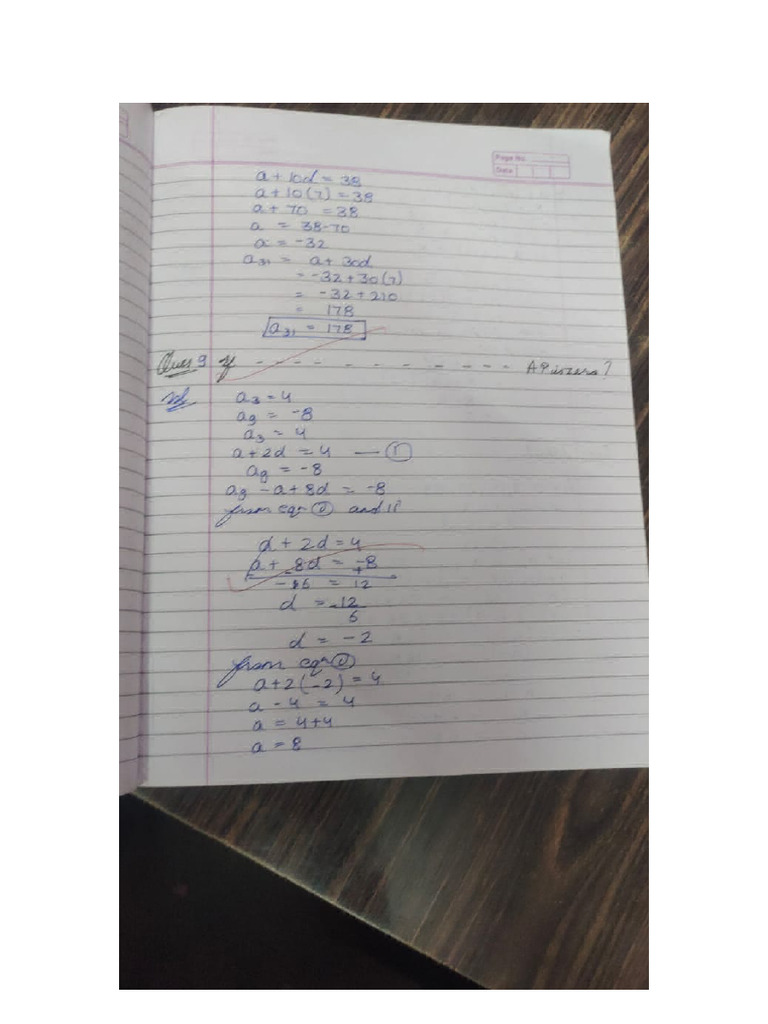 Page No.
Date
a + 10d = 38
a + 10(7) = 38
a + 70 = 38
a = 38-70
a = -32
a31 = a + 30d
= -32 + 30(7)
= -32 + 210
= 178
a31 = 178
Ques 9 If - - - - - - - - - - - - - AP is zero?
Sol
a3 = 4
a9 = -8
a3 = 4
a + 2d = 4 — ①
a9 = -8
a9 - a + 8d = -8
from eqn ① and ii
a + 2d = 4
a + 8d = -8
d = -12
6
d = -2
from eqn ①
a + 2(-2) = 4
a - 4 = 4
a = 4+4
a = 8